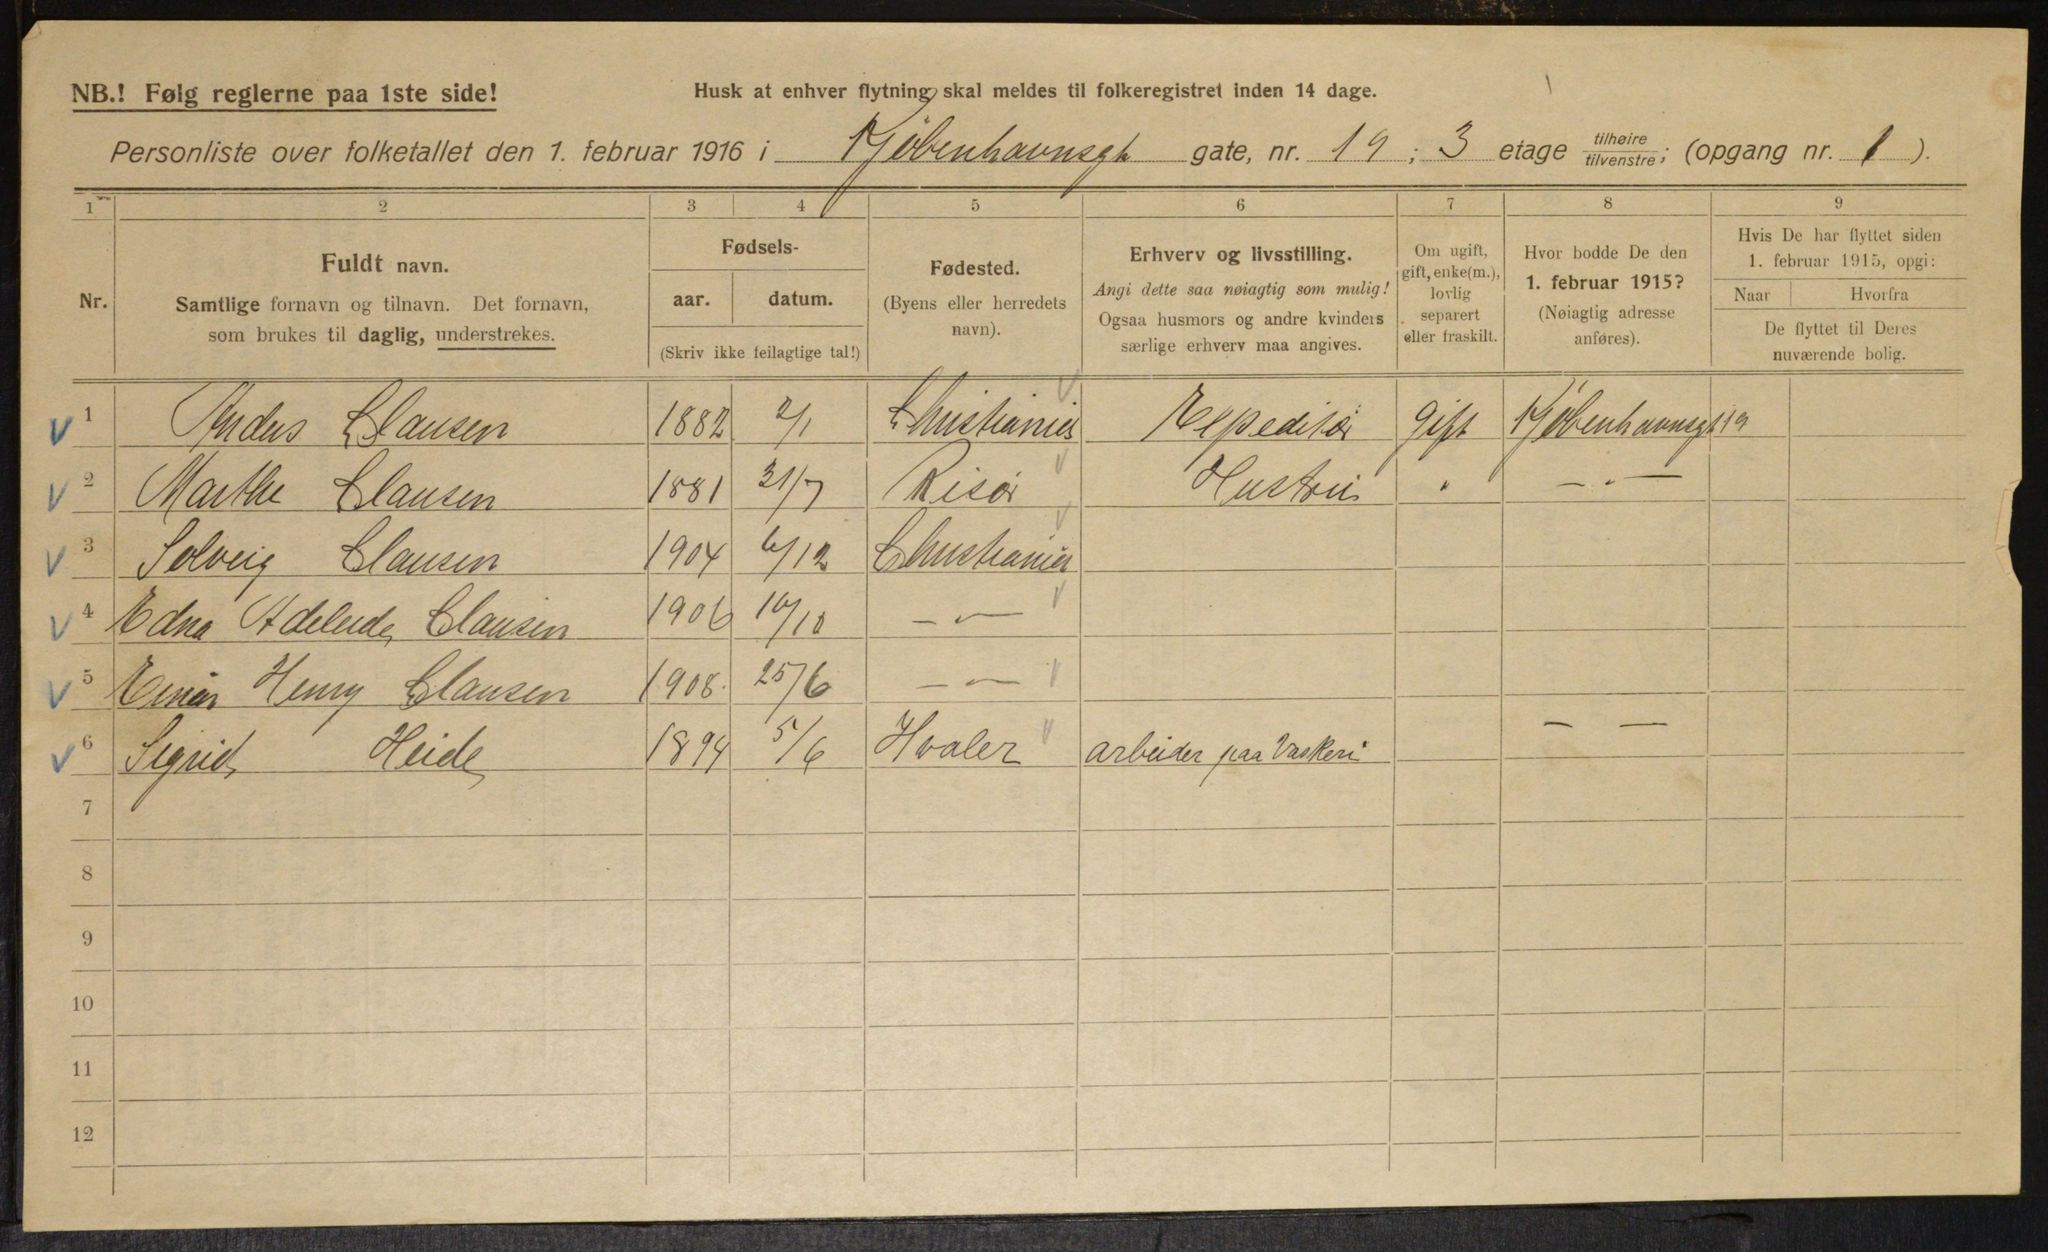 NB.! Følg reglerne paa 1ste side!
Husk at enhver flytning skal meldes til folkeregistret inden 14 dage.
Personliste over folketallet den 1. februar 1916 i Kjøbenhavnsgt gate, nr. 19 ; 3 etage tilhøire tilvenstre; (opgang nr. 1 ).
1 2 3 4 5 6 7 8 9
Nr.
Fuldt navn.
Samtlige fornavn og tilnavn. Det fornavn,
som brukes til daglig, understrekes.
Fødsels-
aar. datum.
(Skriv ikke feilagtige tal!)
Fødested.
(Byens eller herredets
navn).
Erhverv og livsstilling.
Angi dette saa nøiagtig som mulig!
Ogsaa husmors og andre kvinders
særlige erhverv maa angives.
Om ugift,
gift, enke(m.),
lovlig
separert
eller fraskilt.
Hvor bodde De den
1. februar 1915?
(Nøiagtig adresse
anføres).
Hvis De har flyttet siden
1. februar 1915, opgi:
Naar Hvorfra
De flyttet til Deres
nuværende bolig.
1 Anders Clausen 1882 2/1 Christiania Expeditør gift Kjøbenhavnsgt 19
2 Marthe Clausen 1881 31/7 Risør Hustru " — " —
3 Solveig Clausen 1904 6/12 Christiania
4 Edna Adeleide Clausen 1906 10/10 — " —
5 Einar Henry Clausen 1908 25/6 — " —
6 Sigrid Heide 1894 5/6 Hvaler arbeider paa Vaskeri — —
7
8
9
10
11
12